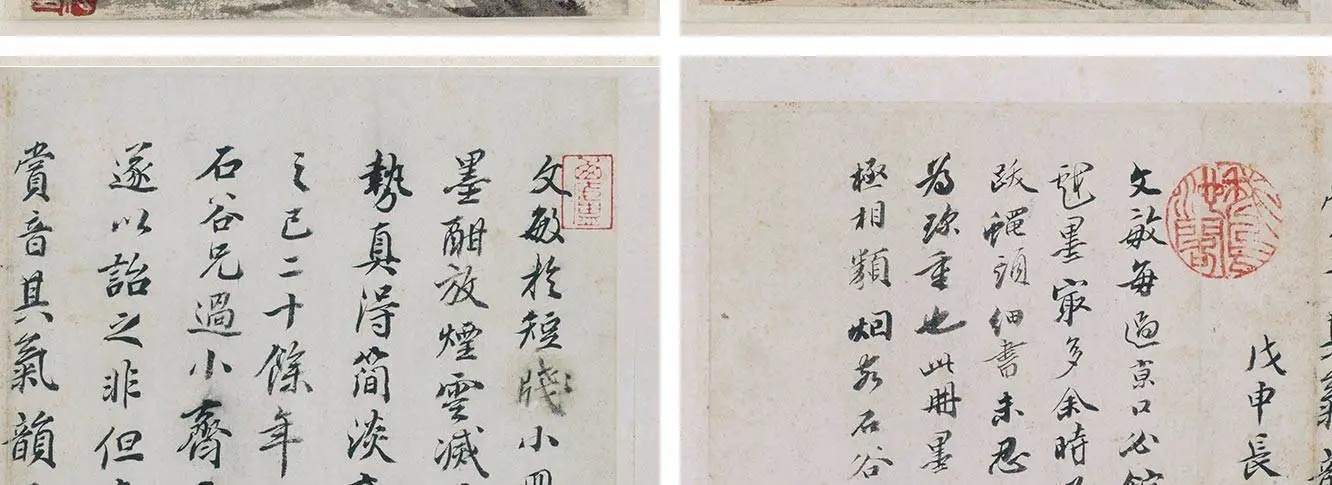 文敏於短牋小冊
墨酣放煙雲滅
勢真得簡淡
之已二十餘年
石谷兄過小齋
遂以詒之非但
賞音其氣韻
音其氣韻
戊申長
文敏每過京口必館
戲墨最多余時
跋蠅頭細書未忍
為珍重也此冊墨
極相類烟石谷